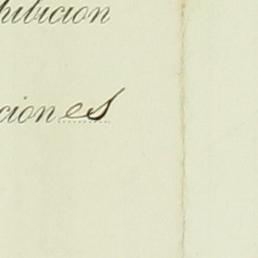 hibicion
ciones